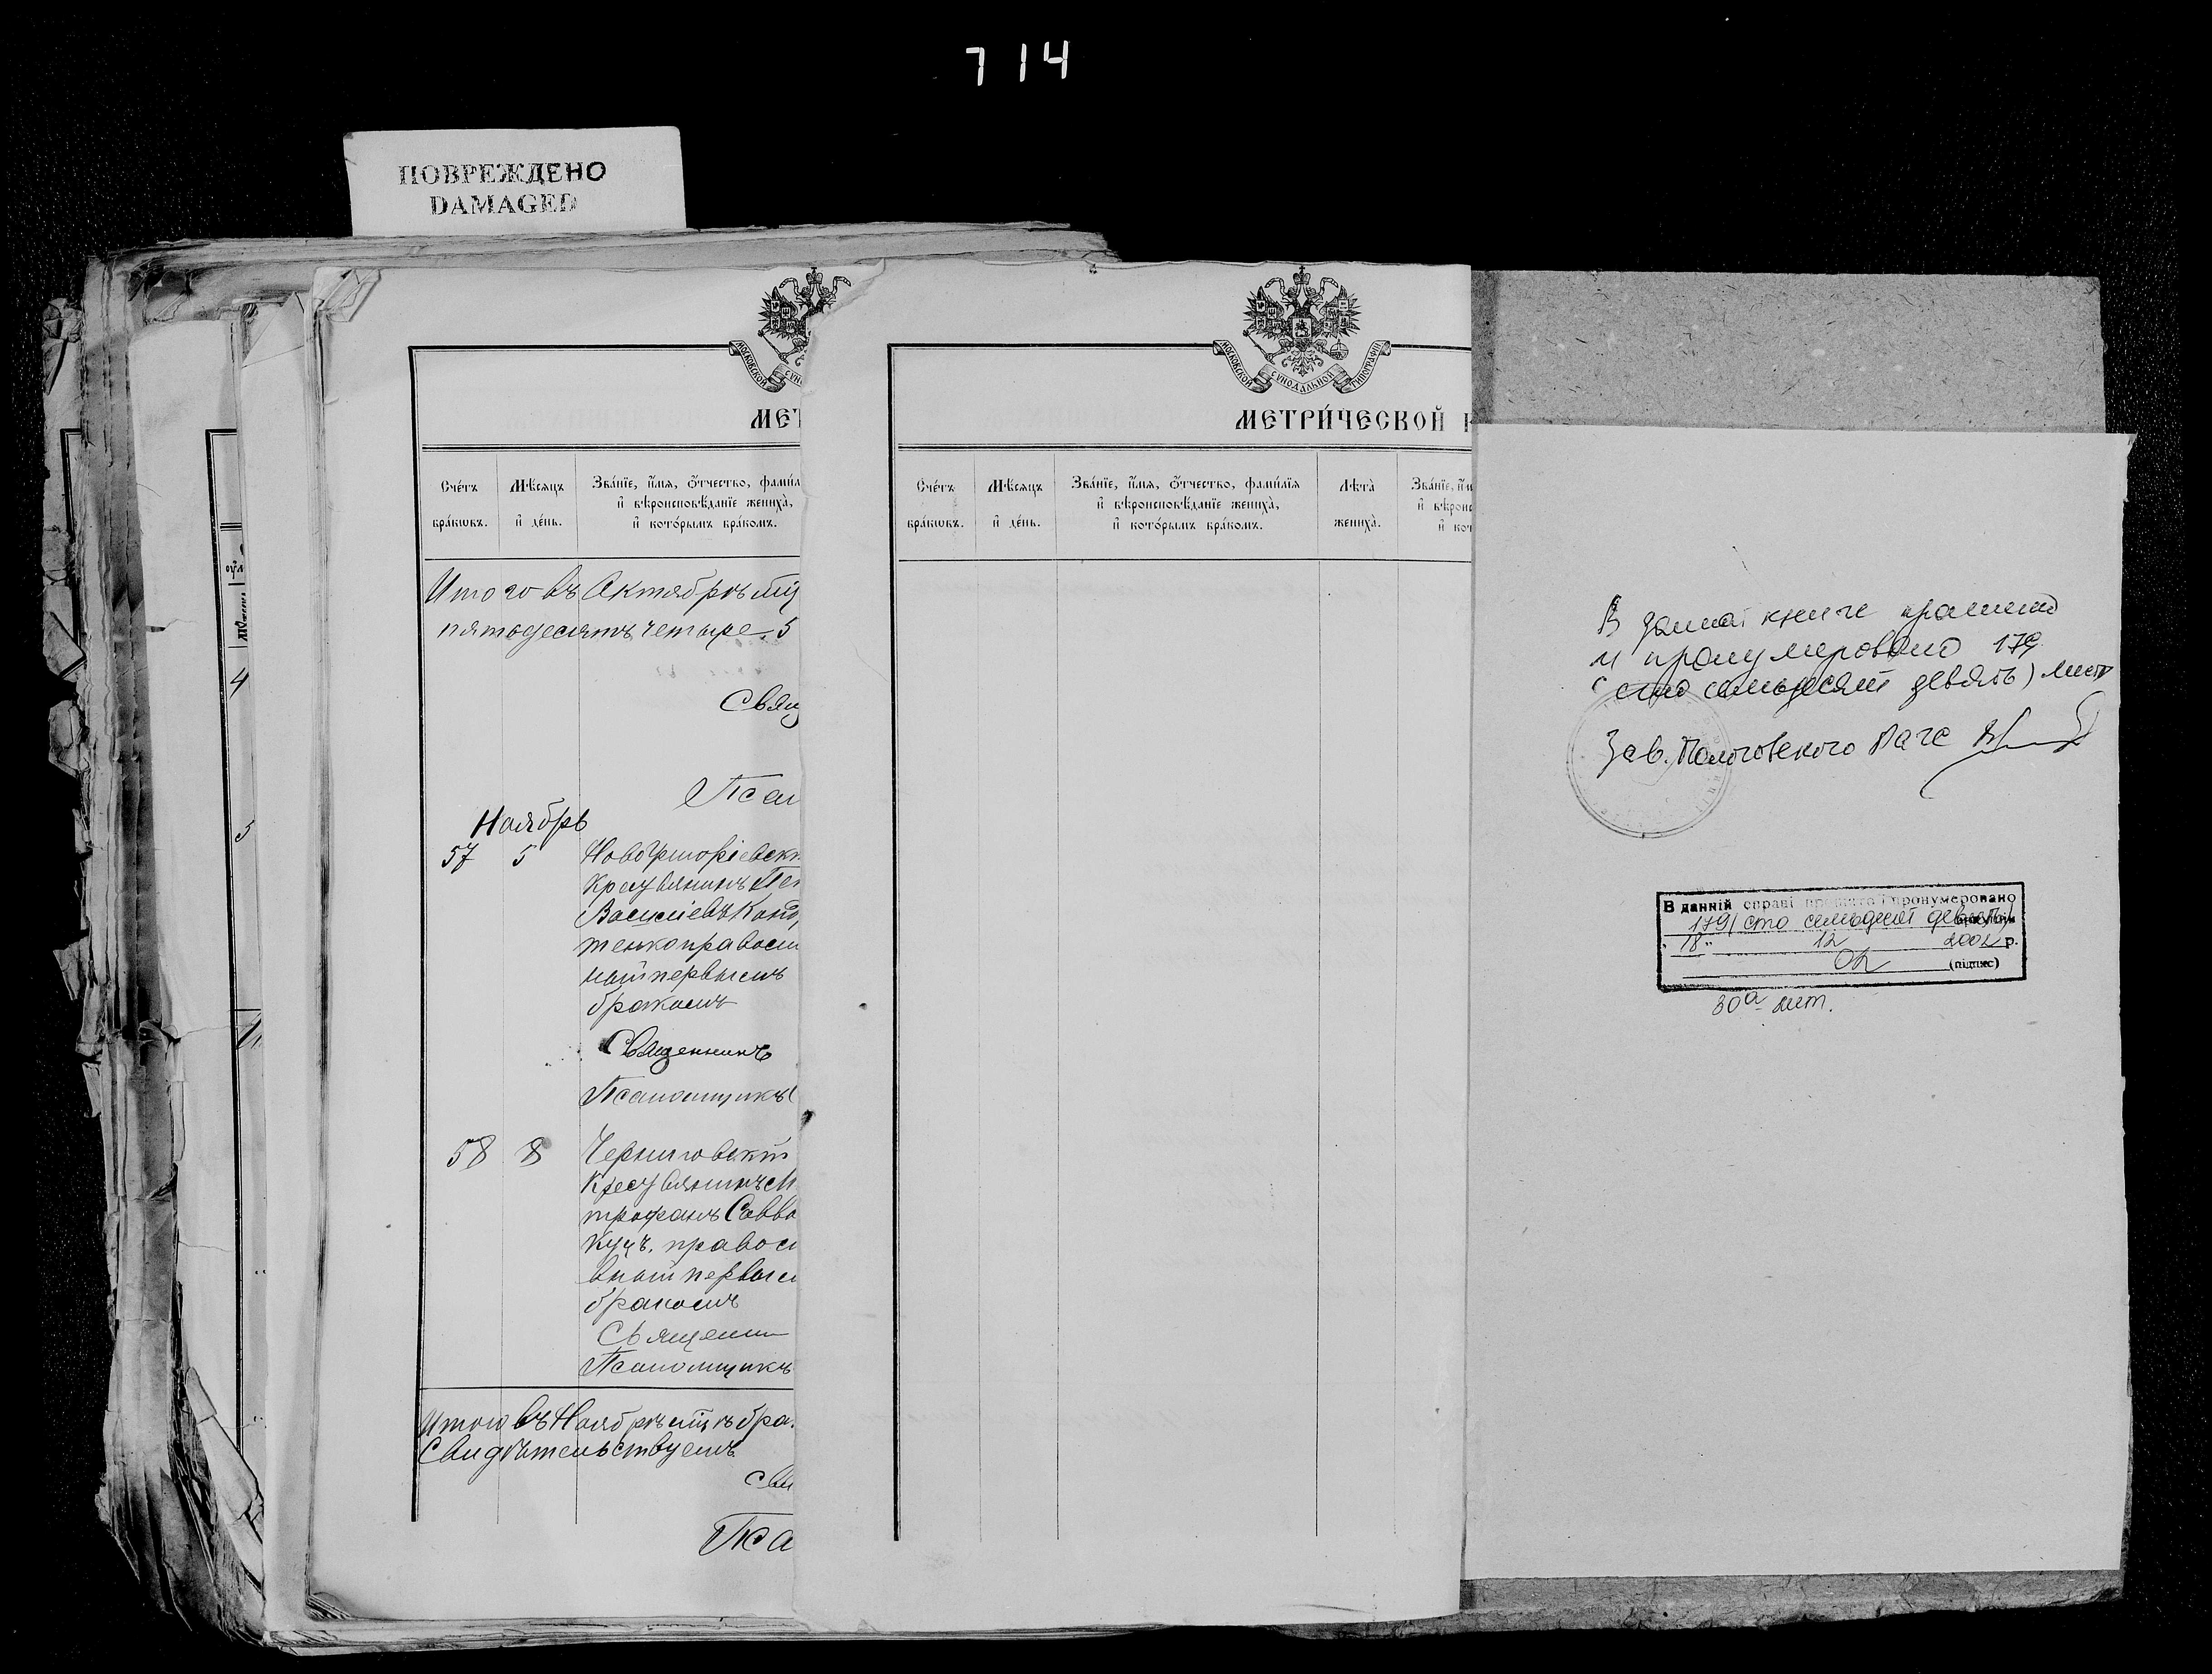 714
ПОВРЕЖДЕНО
DAMAGED
МОСКОВСКОЙ
МЕТ
Сче́тъ бра́кѡвъ.
Мѣ́сяцъ и҆ де́нь.
Зва́нїе, и҆́мя, ѻ҆́тчество, фами́л
и҆ вѣроисповѣ́данїе жениха̀,
и҆ кото́рымъ бра́комъ.
Итого въ Октябрѣ мц
пятьдесятъ четыре. 5
Свящ
Псал
Ноябрь
57 5 Новогригорiевскi
крестьянинъ
Васильевъ Конд
тенко правосл
ный первымъ
бракомъ
Священникъ
Псаломщикъ
58 8 Черниговскiй
Крестьянинъ М
трофанъ Савва
Куцъ. правосл
вный первым
бракомъ
Священни
Псаломщикъ
Итого въ Ноябрѣ мцѣ бра.
Свидѣтельствуемъ
Псa
МОСКОВСКОЙ СѴНОДАЛЬНОЙ ТИПОГРАФІИ
МЕТРИ́ЧЕСКОЙ
Сче́тъ бра́кѡвъ.
Мѣ́сяцъ и҆ де́нь.
Зва́нїе, и҆́мя, ѻ҆́тчество, фами́лїя
и҆ вѣроисповѣ́данїе жениха̀,
и҆ кото́рымъ бра́комъ.
Лѣ́та жениха̀.
Зва́нїе, и҆́м
и҆ вѣроис
и҆ кот
В данной книге прошито
и пронумеровано 179
(сто семьдесят девять) лист
Зав. Пологовского Загс
В данній справі прошито і пронумеровано
179 (сто семьдесят девять)
"18" 12 2002 р.
(підпис)
30а лит.